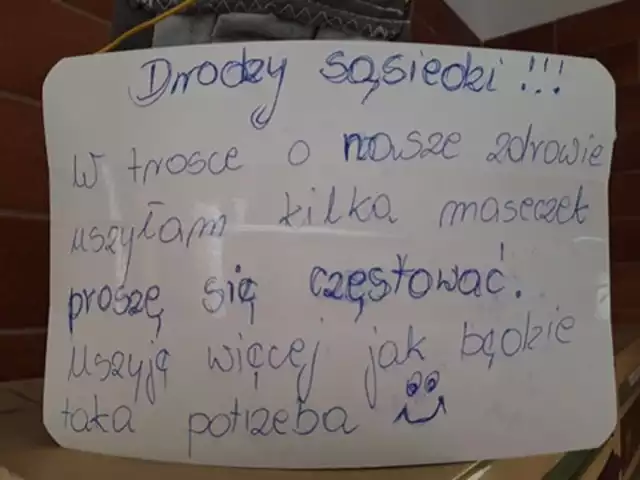 Drodzy sąsiedzi !!!
W trosce o nasze zdrowie
uszyłam kilka maseczek
proszę się częstować.
Uszyję więcej jak będzie
taka potrzeba